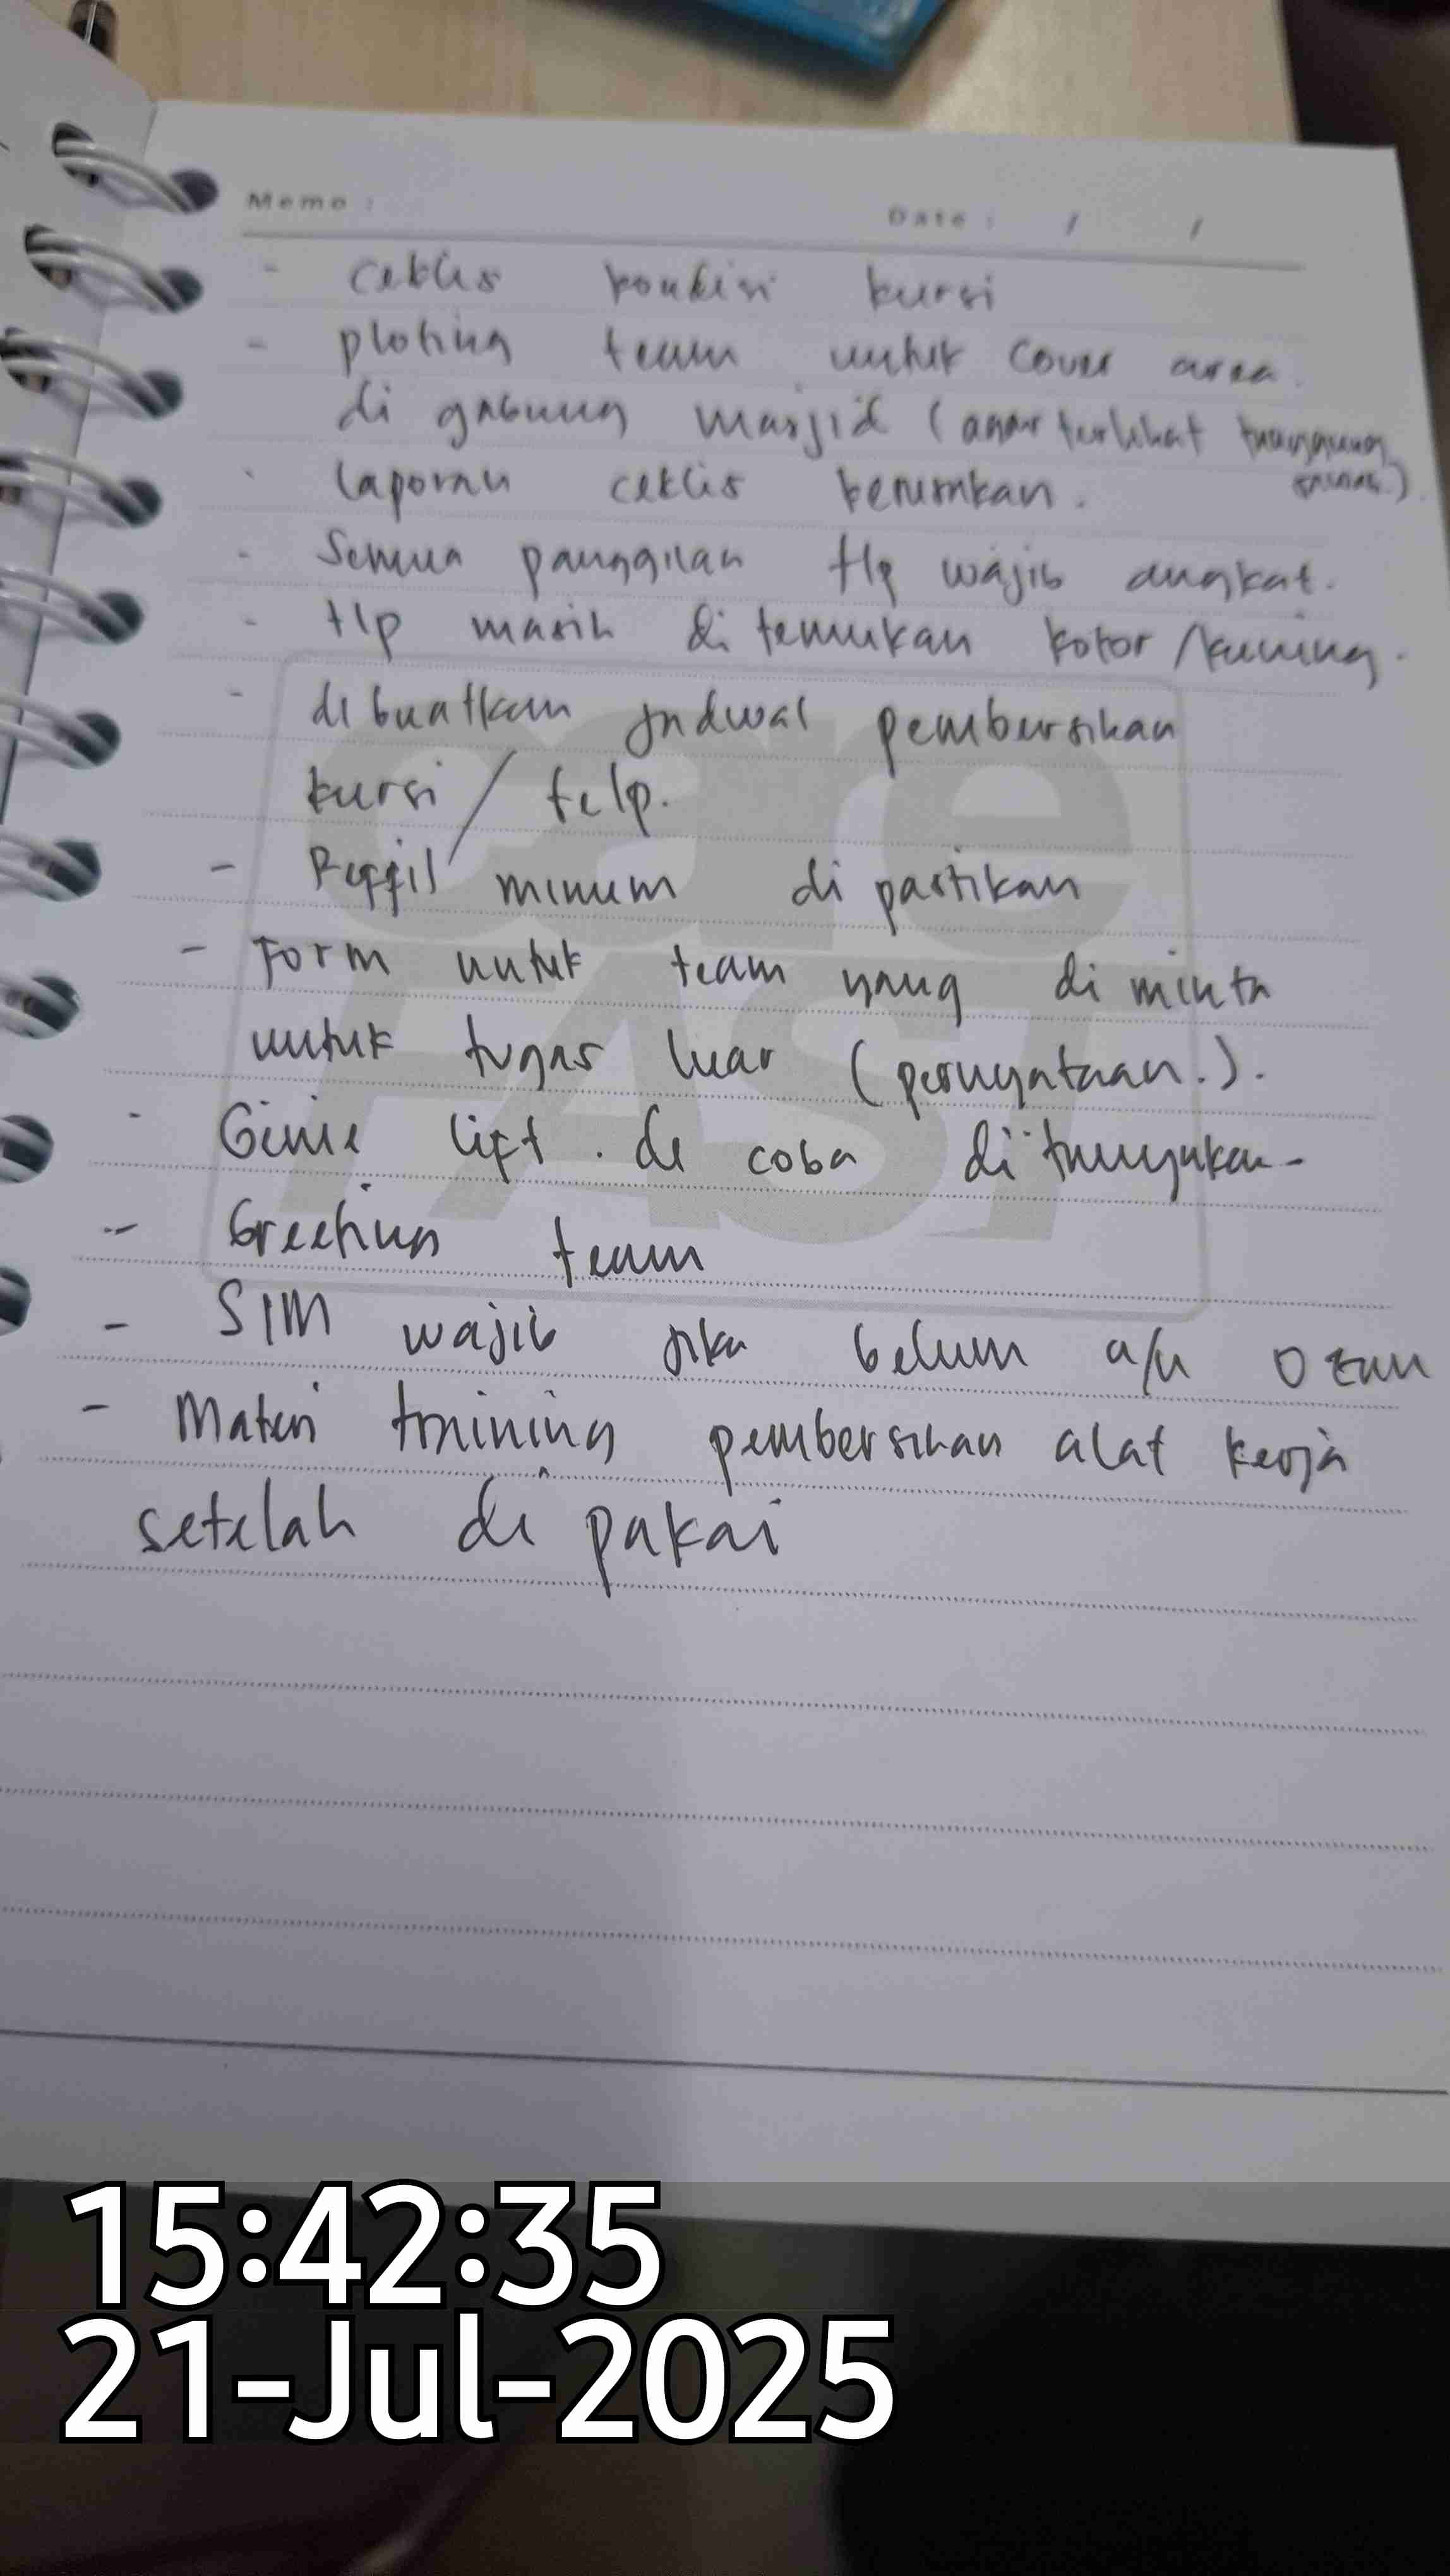 Memo :
Date : / /
- ceklis kondisi kursi
- ploting team untuk cover area
di gabung masjid (agar terlihat
- laporan ceklis kerusakan.
- Semua panggilan tlp wajib angkat.
- tlp masih di temukan kotor/kuning.
- dibuatkan jadwal pembersihan
kursi / telp.
- Reffil minum di pastikan
- Form untuk team yang di minta
untuk tugas luar (pernyataan.).
- Genie lift. di coba di tunjukan-
- Greeting team
- SIM wajib jika belum a/n
- Materi training pembersihan alat kerja
setelah di pakai
care
FAST
15:42:35
21-Jul-2025